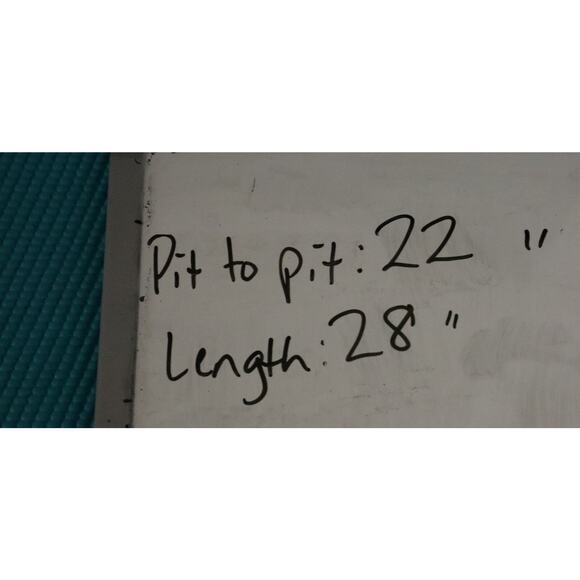 Pit to pit: 22 "
Length: 28 "